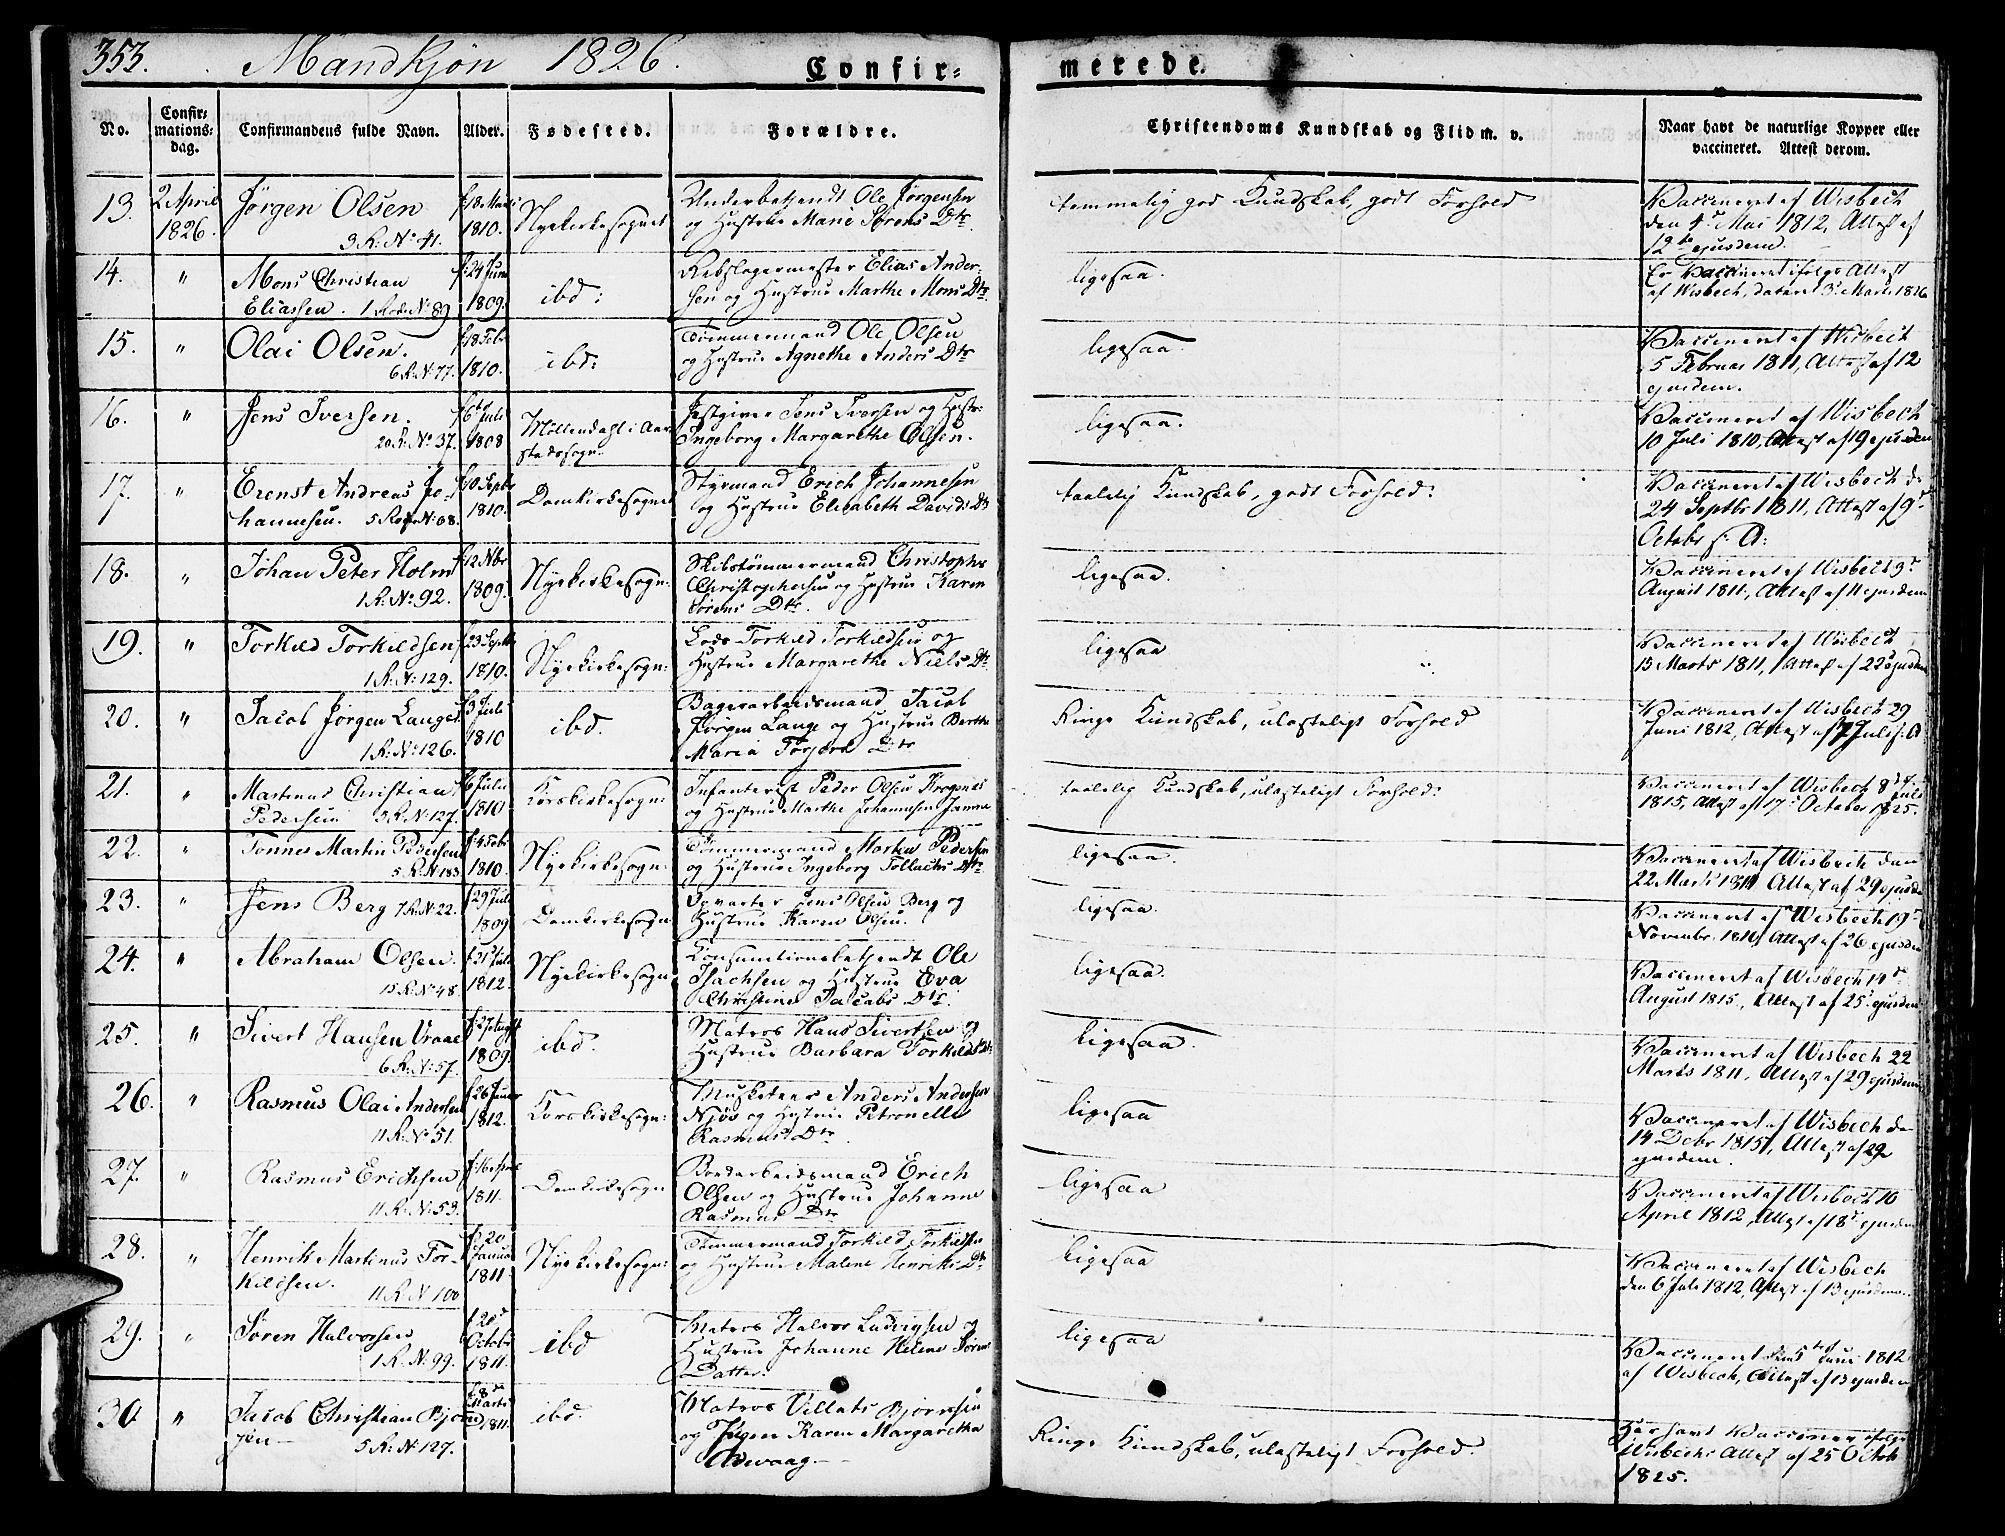 353. Mandkjøn 1826. Confir-merede.
No. Confir-mations-dag. Confirmandens fulde Navn. Alder. Fødested. Forældre. Christendoms Kundskab og Flid m. v. Naar havt de naturlige Kopper eller vaccineret. Attest derom.
13. 2 April 1826. Jørgen Olsen 3 R: No 41. f 18 1810. Nyekirkesognet
Underbetjendt Ole Jørgensen
og Hustrue Marie Sørens Dtr.
temmelig god Kundskab, godt Forhold
Vaccineret af Wisbech
den 4de Mai 1812, Attest af
12te ejusdem.
14. " Mons Christian
Eliassen. 1 Rode No 89 f 24 Juni 1809. ibd:
Rebslagermester Elias Ander-
sen og Hustrue Marthe Mons Dtr.
ligesaa.
Er Vaccineret ifølge Attest
af Wisbech, dateret 3d Marts 1826
15. " Olai Olsen. 6 R: No 77. f 18 Febr 1810. ibd:
Tømmermand Ole Olsen
og Hustrue Agnethe Anders Dtr
ligesaa
Vaccineret af Wisbech
5 Februar 1811, Attest af 12
ejusdem.
16. " Jens Iversen. 20 R: No 37. f 6te Juli 1808 Møllendahl i Aar-
stadsogn.
Jens Iversen og Hustr:
Ingeborg Margarethe Olsen.
ligesaa.
Vaccineret af Wisbech
10 Juli 1810, Attest af 19 ejusdem
17. " Erenst Andreas Jo-
hannesen. 5 Rode No: 08. f 10 Septbr 1810. Domkirkesognet
Styrmand Erich Johannesen
og Hustrue Elisabeth Davids Dtr
taalelig Kundskab, godt Forhold.
Vaccineret af Wisbech d.
24 Septbr 1811, Attest af 9d
Octobr s: A:
18. " Johan Peter Holm 1 R: No 92. f 12 Nbr 1809. Nyekirkesogn:
Skibstømmermand Christopher
Christophersen og Hustrue Karen
Sørens Dtr.
ligesaa.
Vaccineret af Wisbech 9d
August 1811, Attest af 11 ejusdem
19. " Torkild Torkildsen 1 R: No 129. f 23 Septbr 1810. Nyekirkesogn:
Lods Torkild Torkildsen og
Hustrue Margarethe Niels Dtr.
ligesaa "
Vaccineret af Wisbech
15 Marts 1811, Attest af 22 ejusdem
20. " Jacob Jørgen Lange. 1 R: No 126. f 3 Juli 1810 ibd.
Bagerarbeidsmand Jacob
Jørgen Lange og Hustrue Berthe
Maria Torjora Dtr
Ringe Kundskab, ulasteligt Forhold
Vaccineret af Wisbech 29
Juni 1812, Attest af 7 Juli s: A
21. " Martinus Christian
Pedersen 3 R: No 127. f 6 Juli 1810 Korskirkesogn:
Infanterist Peder Olsen
og Hustrue Marthe Johannesen
taalelig Kundskab, ulasteligt Forhold:
Vaccineret af Wisbech 8de Juli
1815, Attest af 17d October 1825.
22. " Tønnes Martin Pedersen 5 R: No 183 f 4 Febr 1810. Nyekirkesogn:
Tømmermand Morten Pedersen
og Hustrue Ingeborg Tollachs Dtr.
ligesaa.
Vaccineret af Wisbech den
22 Marts 1811 Attest af 29 ejusdem
23. " Jens Berg 7 R: No 22. f 29 Juli 1809 Domkirkesogn:
Opvarter Jens Olsen Berg og
Hustrue Karen Olsen.
ligesaa.
Vaccineret af Wisbech 19d
Novembr. 1810, Attest af 26 ejusdem
24. " Abraham Olsen. 15 R: No 48. f 21 Juli 1812. Nyekirkesogn
Consumtionsbetjendt Ole
Isachsen og Hustrue Eva
Christine Jacobs Dtr.
ligesaa.
Vaccineret af Wisbech 14d
August 1815, Attest af 25d ejusdem
25. " Sivert Hansen Vraae 6 R: No 57. f 27 Augst 1809. ibd.
Matros Hans Sivertsen og
Hustrue Barbara Torkilds Dtr:
ligesaa.
Vaccineret af Wisbech 22
Marts 1811, Attest af 29 ejusdem
26. " Rasmus Olai Andersen 11 R: No 51. f 26 1812. Korskirkesogn:
Musketeer Anders Andersen
Njøs og Hustrue Petronelle
Rasmus Dtr.
ligesaa
Vaccineret af Wisbech den
14 Debr 1815, Attest af 22
ejusdem.
27. " Rasmus Erichsen 11 R: No 53. f 16 April 1811. Domkirkesogn
Bordarbeidsmand Erich
Olsen og Hustrue Johanne
Rasmus Dtr
ligesaa
Vaccineret af Wisbech 10
April 1812, Attest af 18d ejusdem
28. " Henrik Martinus Tor-
kildsen. 11 R: No 100 f 20. Januar 1811 Nyekirkesogn:
Tømmermand Torkild Torkildsen
og Hustrue Malene Henriks Dtr
ligesaa
Vaccineret af Wisbech
den 6 Juli 1812, Attest af 13 ejusdem.
29. " Søren Halvorsen 1 R: No 99. f 20d Octobr 1811. ibd
Matros Halvor Ludvigsen og
Hustrue Johanne Helene Sørens
Datter.
ligesaa
Vaccineret den 5te Juni 1812
af Wisbech, Attest af 13 ejusdem
30 " Jacob Christian Bjørn
sen 5 R: No 127. f 8de Marts 1811. ibd.
Matros Villats Bjørnsen
og Karen Margaretha
Ringe Kundskab, ulasteligt Forhold.
Har havt Vacciner ifølge
Wisbechs Attest af 25 Octob
1825.